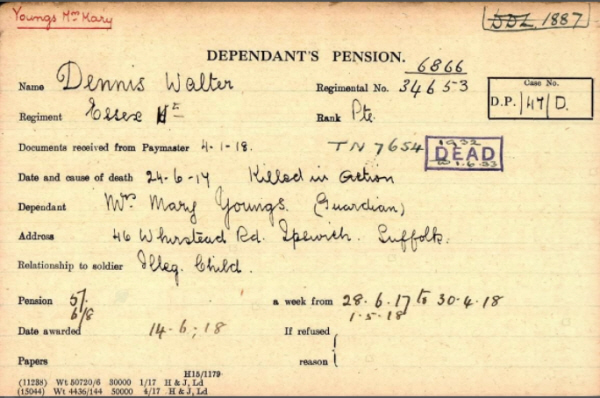 Youngs Mrs Mary
DDZ 1887
DEPENDANT'S PENSION.
6866
Name Dennis Walter Regimental No. 34653
Case No.
D.P./47/D.
Regiment Essex Rank Pte.
Documents received from Paymaster 4-1-18. TN 7654
1932
DEAD
1.6.33
Date and cause of death 24-6-17 Killed in Action
Dependant Mrs Mary Youngs. (Guardian)
Address 46 Wherstead Rd. Ipswich. Suffolk.
Relationship to soldier Illeg. Child.
Pension 5/- a week from 28.6.17 to 30.4.18
6/8 1.5.18
Date awarded 14.6.18 If refused
Papers reason
H15/1179
(11238) Wt 50720/6 30000 1/17 H & J, Ld
(15044) Wt 4436/144 50000 4/17 H & J, Ld